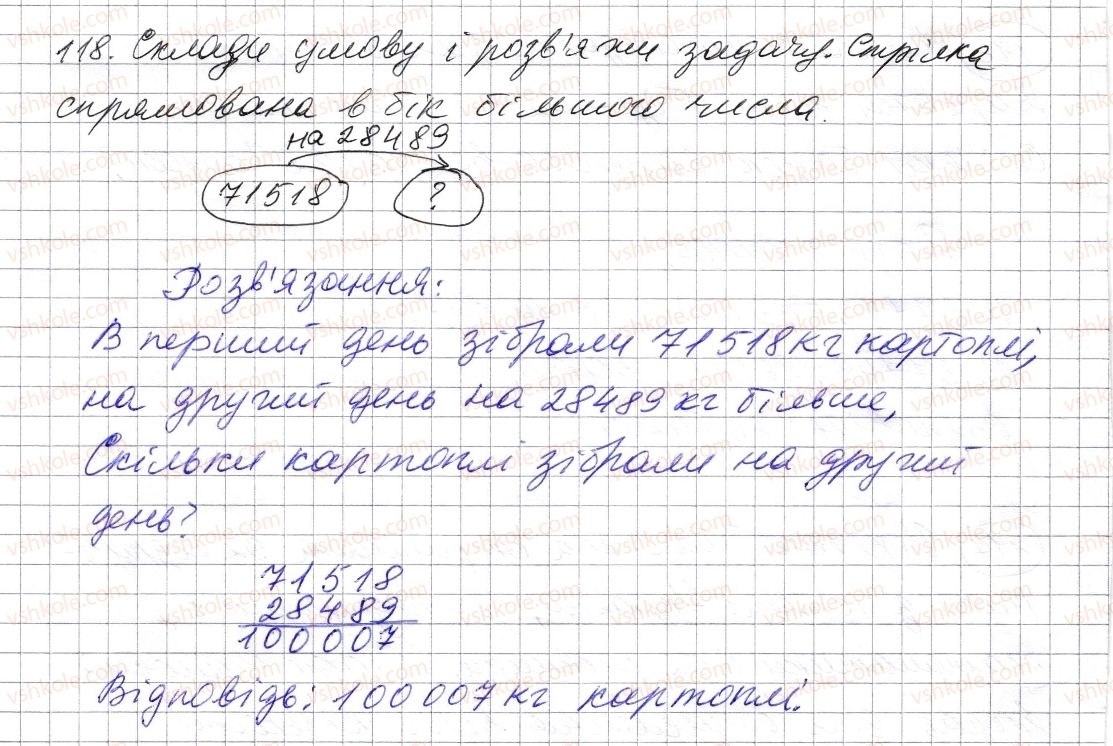 118. Склади умову і розв'яжи задачу. Стрілка
спрямована в бік більшого числа.
на 28489
71518 ?
Розв'язання:
В перший день зібрали 71518 кг картоплі,
на другий день на 28489 кг більше,
Скільки картоплі зібрали на другий
день?
71518
28489
100007
Відповідь: 100007 кг картоплі.